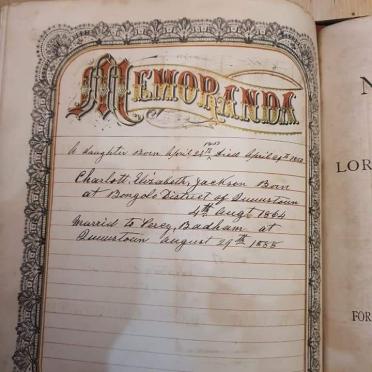 MEMORANDA
A daughter Born April 28th, Died April 29th
Charlott, Elizabeth, Jackson Born
at Bongolo District of Queenstown
4th Augt 1864
Married to Percy, Badham at
Queenstown August 29th 1885
N
LOR
FOR